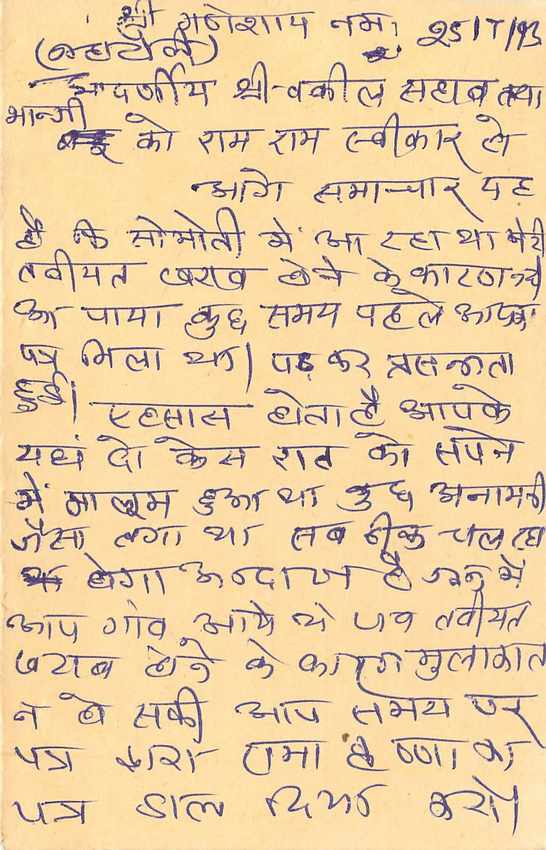 श्री गणेशाय नमः 25/7/93
आदर्णीय श्री वकील सहाब तथा
भान्जी को राम राम स्वीकार हो
आगे समाचार यह
है कि सोमोती में आ रहा था मेरी
तबीयत खराब होने के कारण नही
आ पाया कुछ समय पहले आपका
पत्र मिला था। पढ़ कर प्रसन्नता
हुई। एहसास होता है आपके
यहां दो केस रात को सपने
में मालूम हुआ था कुछ अनामनी
जैसा लगा था सब ठीक चल रहा
होगा अन्दाज है जून में
आप गांव आये थे पर तबीयत
खराब होने के कारण मुलाकात
न हो सकी आप समय पर
पत्र द्वारा का
पत्र डाल दिया करो।